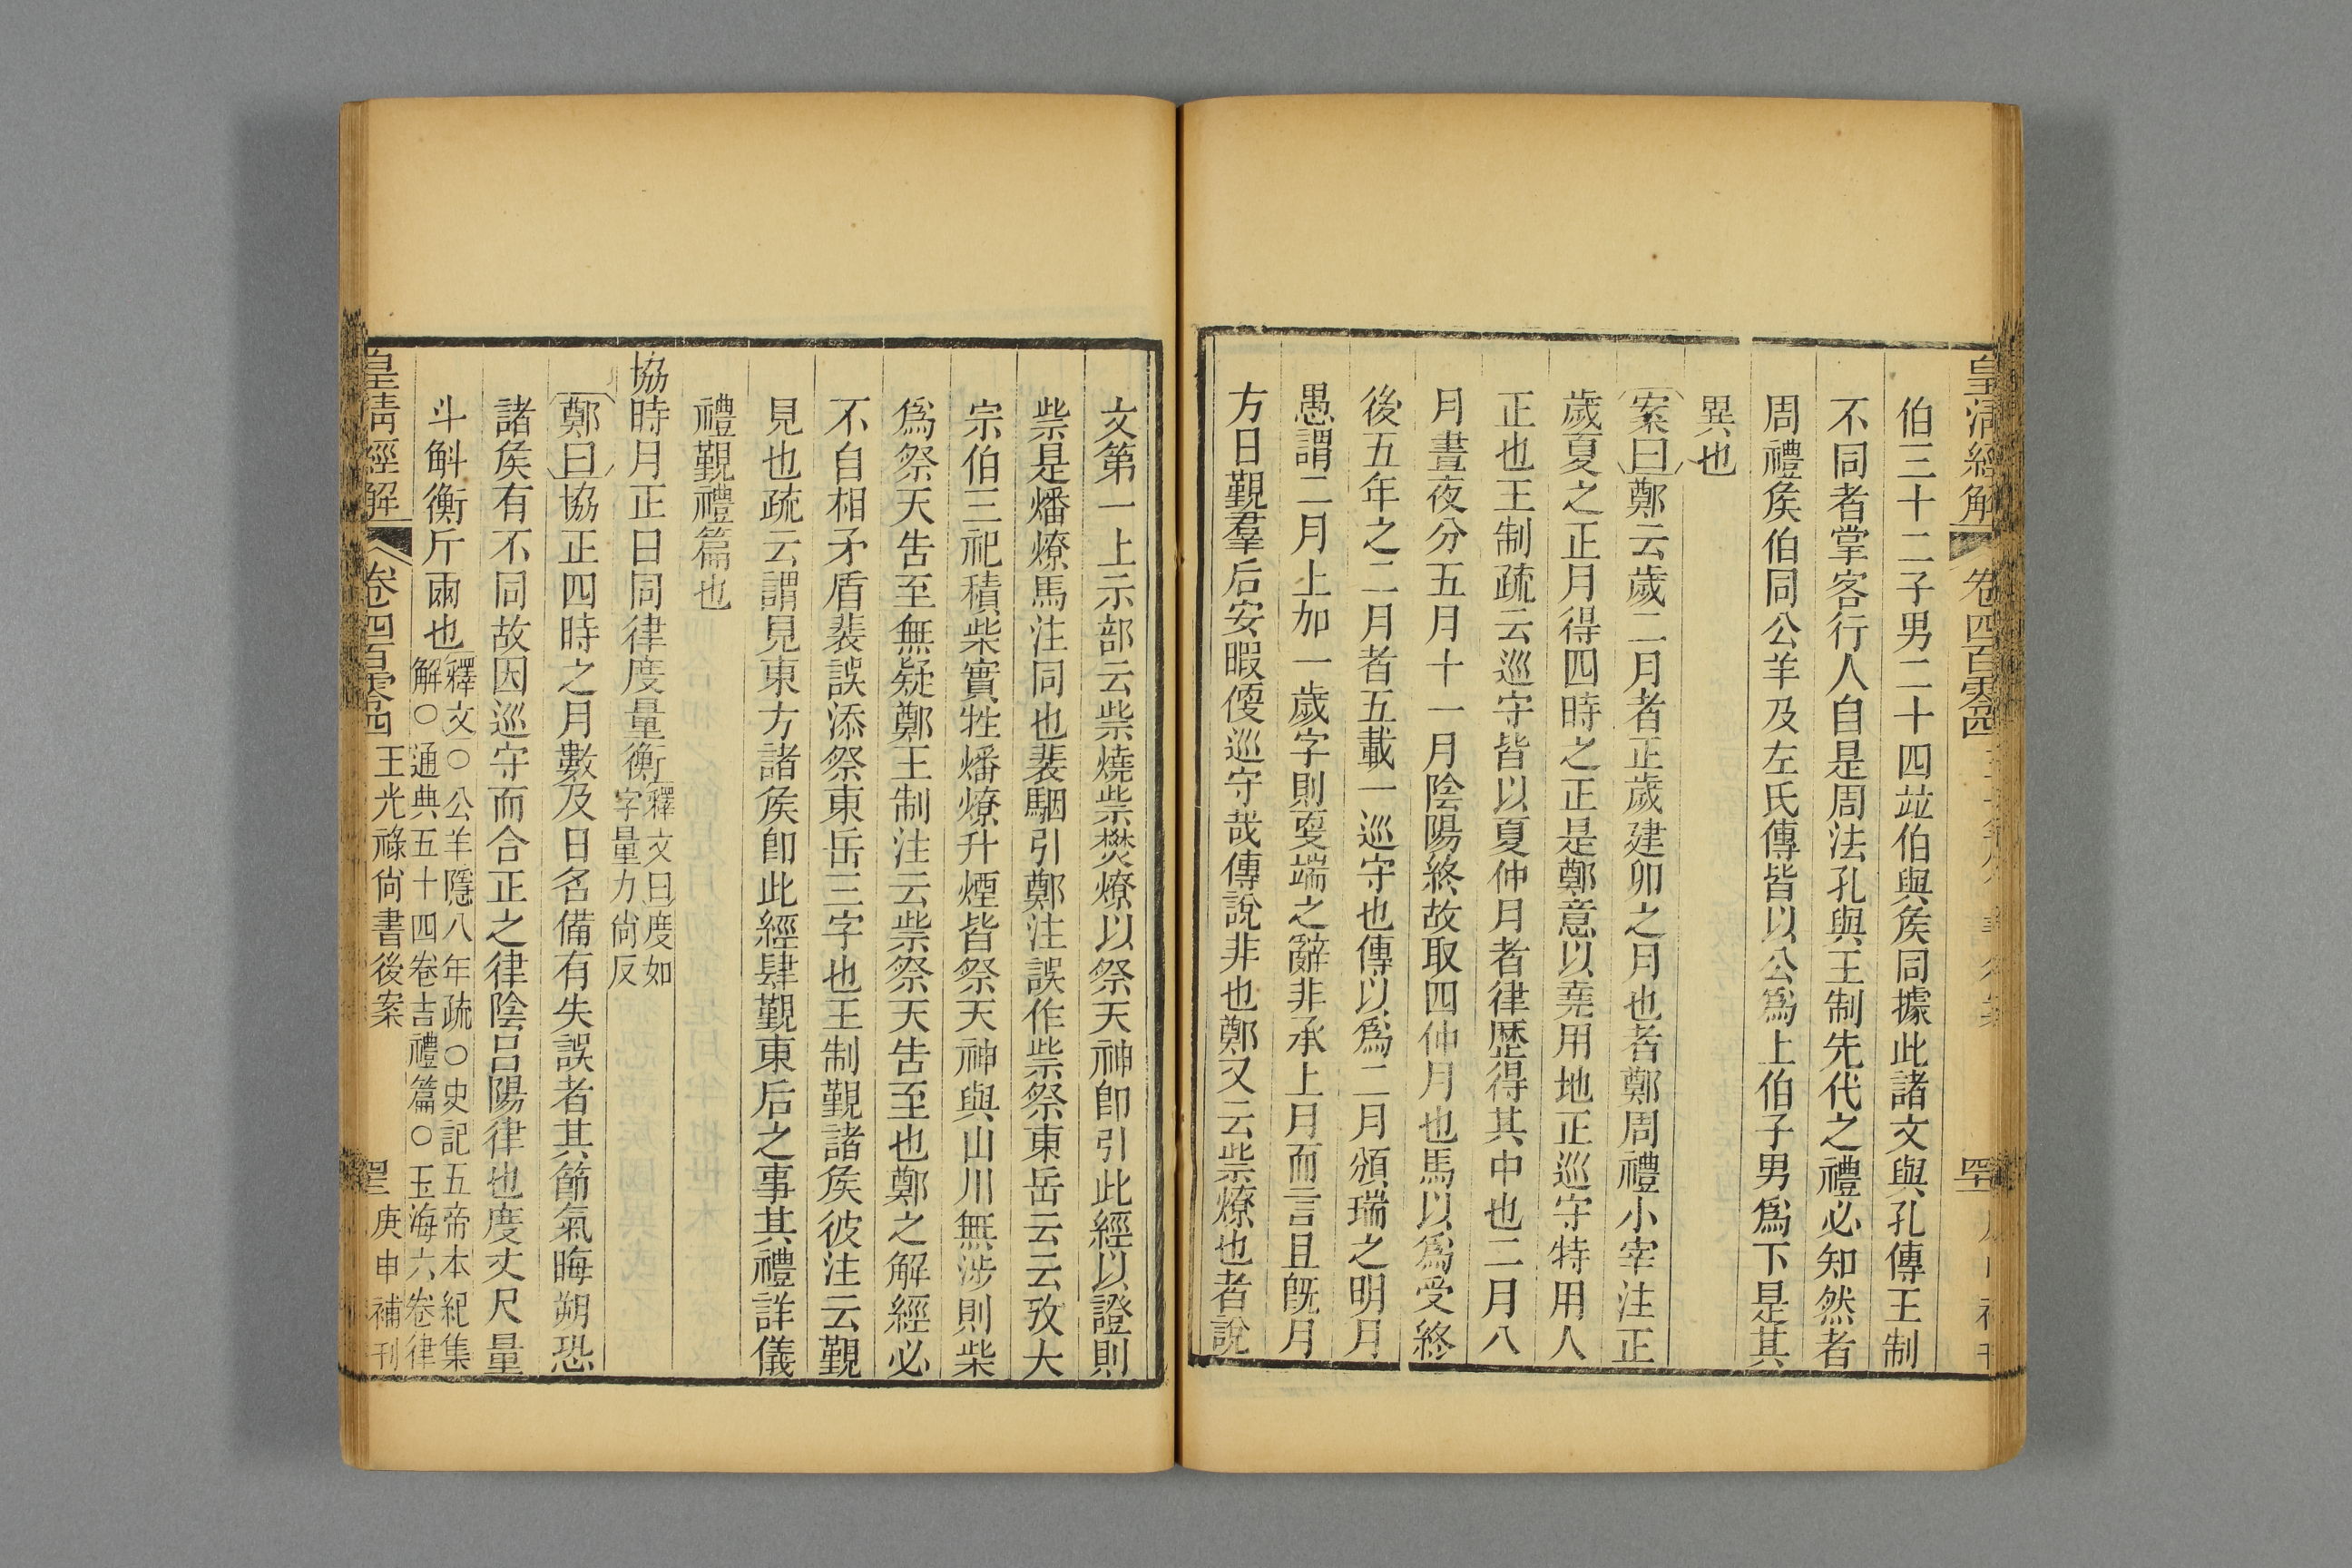 皇清經解 卷四百零四
伯三十二子男二十四竝伯與矦同據此諸文與孔傳王制
不同者掌客行人自是周法孔與王制先代之禮必知然者
周禮矦伯同公羊及左氏傳皆以公爲上伯子男爲下是其
異也
案曰鄭云歲二月者正歲建卯之月也者鄭周禮小宰注正
歲夏之正月得四時之正是鄭意以堯用地正巡守特用人
正也王制疏云巡守皆以夏仲月者律歷得其中也二月八
月晝夜分五月十一月陰陽終故取四仲月也馬以爲受終
後五年之二月者五載一巡守也傳以爲二月頒瑞之明月
愚謂二月上加一歲字則更端之辭非承上月而言且旣月
方日覲羣后安暇偄巡守哉傳說非也鄭又云祡燎也者說
文第一上示部云祡燒祡焚燎以祭天神卽引此經以證則
祡是燔燎馬注同也裴駰引鄭注誤作祡祭東岳云云攷大
宗伯三祀積柴實牲燔燎升煙皆祭天神與山川無涉則柴
爲祭天告至無疑鄭王制注云祡祭天告至也鄭之解經必
不自相矛盾裴誤添祭東岳三字也王制覲諸矦彼注云覲
見也疏云謂見東方諸矦卽此經肆覲東后之事其禮詳儀
禮覲禮篇也
協時月正日同律度量衡釋文曰度如字量力尙反
鄭曰協正四時之月數及日名備有失誤者其節氣晦朔恐
諸矦有不同故因巡守而合正之律陰呂陽律也度丈尺量
斗斛衡斤兩也釋文○公羊隱八年疏○史記五帝本紀集解○通典五十四卷吉禮篇○玉海六卷律
皇清經解 卷四百零四 王光祿尙書後案 庚申補刊